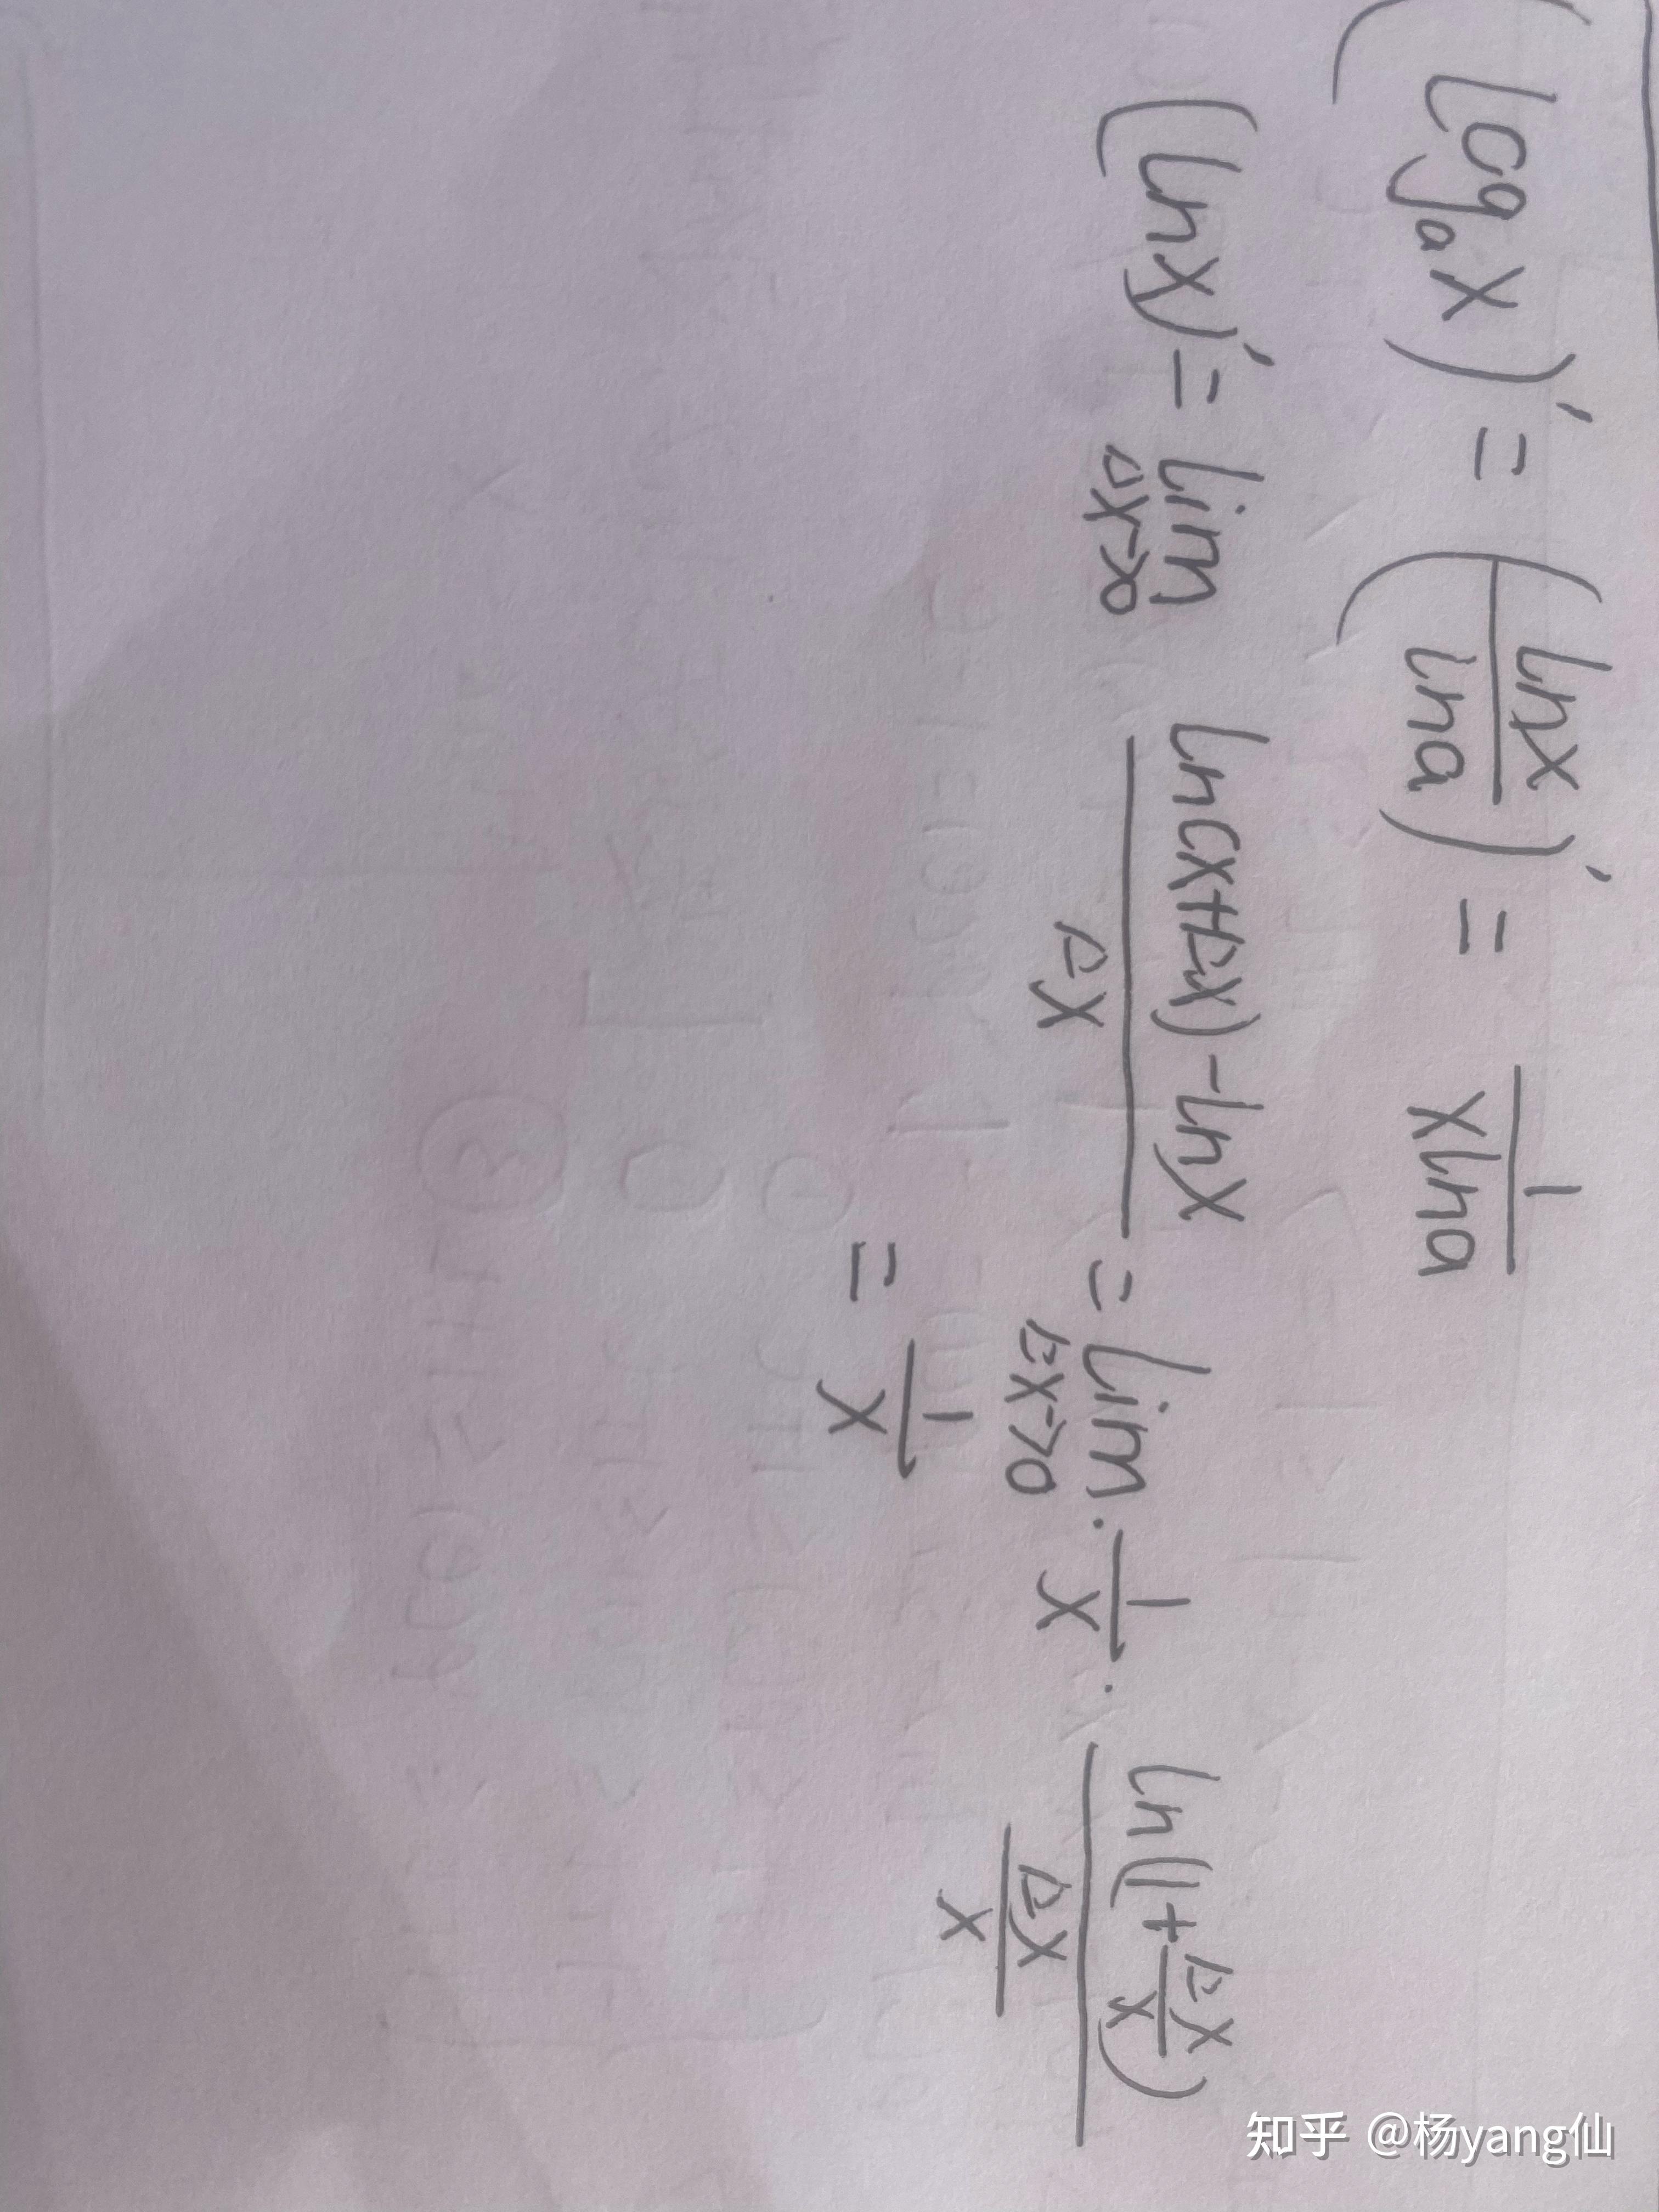 (log_a x)' = (lnx/lna)' = 1/(xlna)
(lnx)' = lim_{Δx→0} (ln(x+Δx)-lnx)/Δx = lim_{Δx→0} · 1/x · ln(1+Δx/x)/(Δx/x)
= 1/x
知乎 @杨yang仙